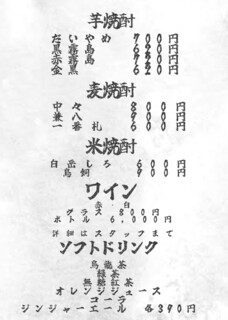 芋焼酎
だいやめ 700円
黒霧島 620円
赤霧島 720円
金黒 650円
麦焼酎
中々 800円
兼八 900円
一番札 600円
米焼酎
白岳しろ 600円
鳥飼 900円
ワイン
赤・白
グラス 800円
ボトル 6,000円
詳細はスタッフまで
ソフトドリンク
烏龍茶
緑茶
無糖紅茶
オレンジジュース
コーラ
ジンジャーエール 各390円